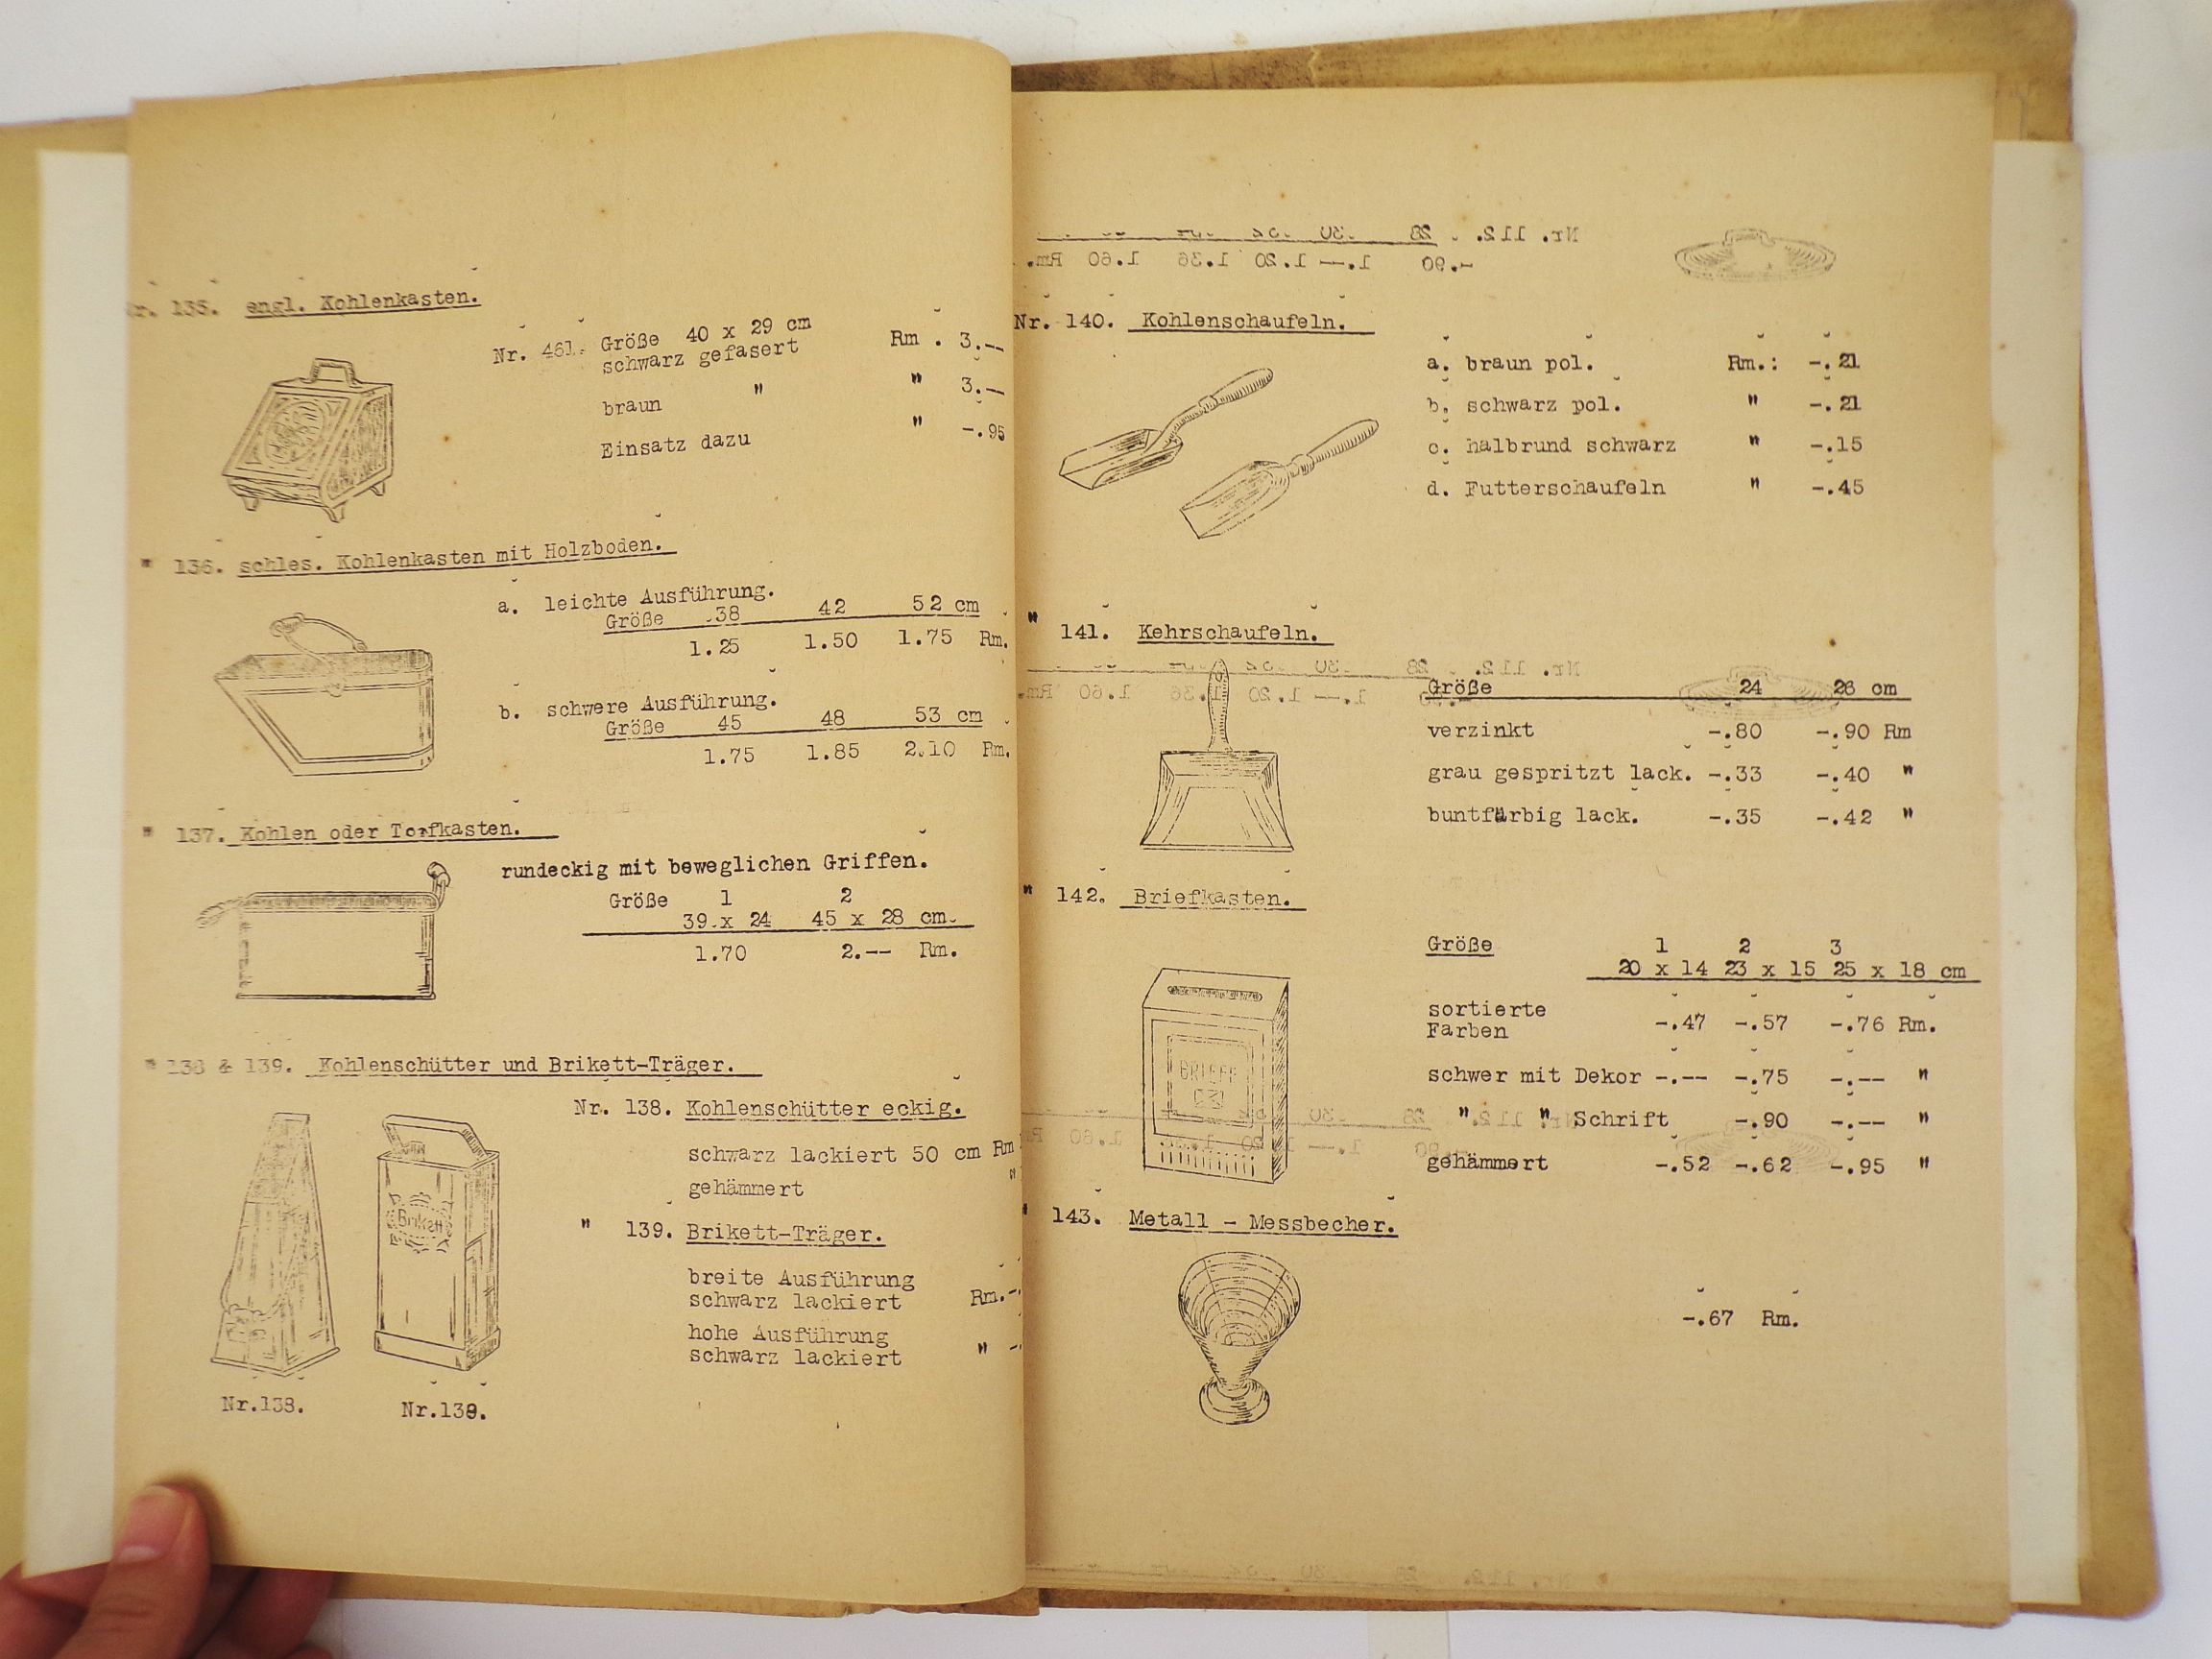 Nr. 135. engl. Kohlenkasten.
Nr. 461. Größe 40 x 29 cm
schwarz gefasert Rm . 3.--
braun " " 3.--
Einsatz dazu " -.95
" 136. schles. Kohlenkasten mit Holzboden.
a. leichte Ausführung.
Größe 38 42 52 cm
1.25 1.50 1.75 Rm.
b. schwere Ausführung.
Größe 45 48 53 cm
1.75 1.85 2.10 Rm.
" 137. Kohlen oder Torfkasten.
rundeckig mit beweglichen Griffen.
Größe 1 2
39 x 24 45 x 28 cm.
1.70 2.-- Rm.
" 138 & 139. Kohlenschütter und Brikett-Träger.
Nr. 138. Kohlenschütter eckig.
schwarz lackiert 50 cm Rm
gehämmert "
" 139. Brikett-Träger.
breite Ausführung
schwarz lackiert Rm.-
hohe Ausführung
schwarz lackiert " -
Brikett
Nr.138. Nr.139.
Nr. 112. 28 30
-.90 1.-- 1.20 1.36 1.60 Rm.
Nr. 140. Kohlenschaufeln.
a. braun pol. Rm.: -.21
b. schwarz pol. " -.21
c. halbrund schwarz " -.15
d. Futterschaufeln " -.45
" 141. Kehrschaufeln.
Nr. 112. 28 30
1.-- 1.20 1.36 1.60 Rm.
Größe 24 26 cm
verzinkt -.80 -.90 Rm
grau gespritzt lack. -.33 -.40 "
buntfärbig lack. -.35 -.42 "
" 142. Briefkasten.
Größe 1 2 3
20 x 14 23 x 15 25 x 18 cm
sortierte
Farben -.47 -.57 -.76 Rm.
schwer mit Dekor -.-- -.75 -.-- "
" " Schrift -.90 -.-- "
gehämmert -.52 -.62 -.95 "
BRIEFE
" 143. Metall - Messbecher.
-.67 Rm.